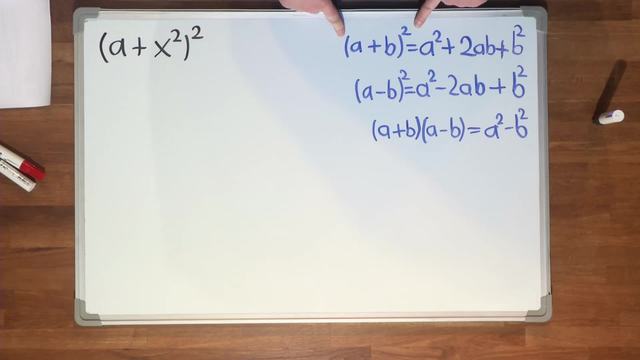 (a + x²)²
(a + b)² = a² + 2ab + b²
(a - b)² = a² - 2ab + b²
(a + b)(a - b) = a² - b²